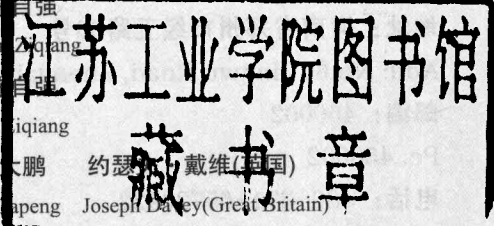 自强
Ziqiang
江苏工业学院图书馆
自强
Ziqiang
藏书章
大鹏 约瑟 戴维(英国)
apeng Joseph Davey(Great Britain)